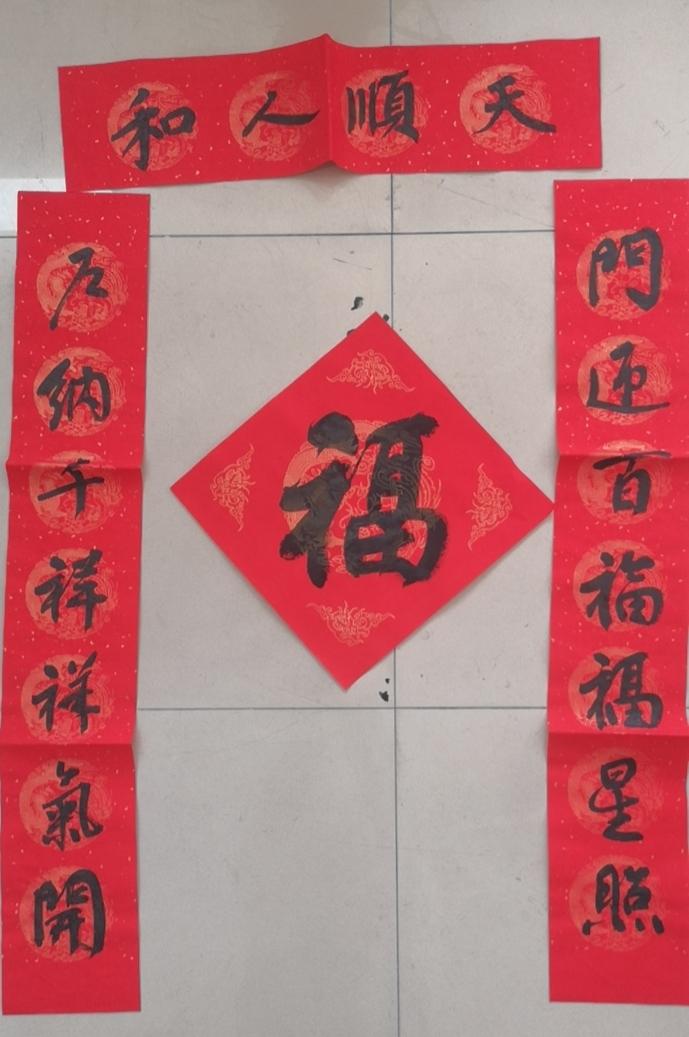 天順人和
門迎百福福星照
戶納千祥祥氣開
福